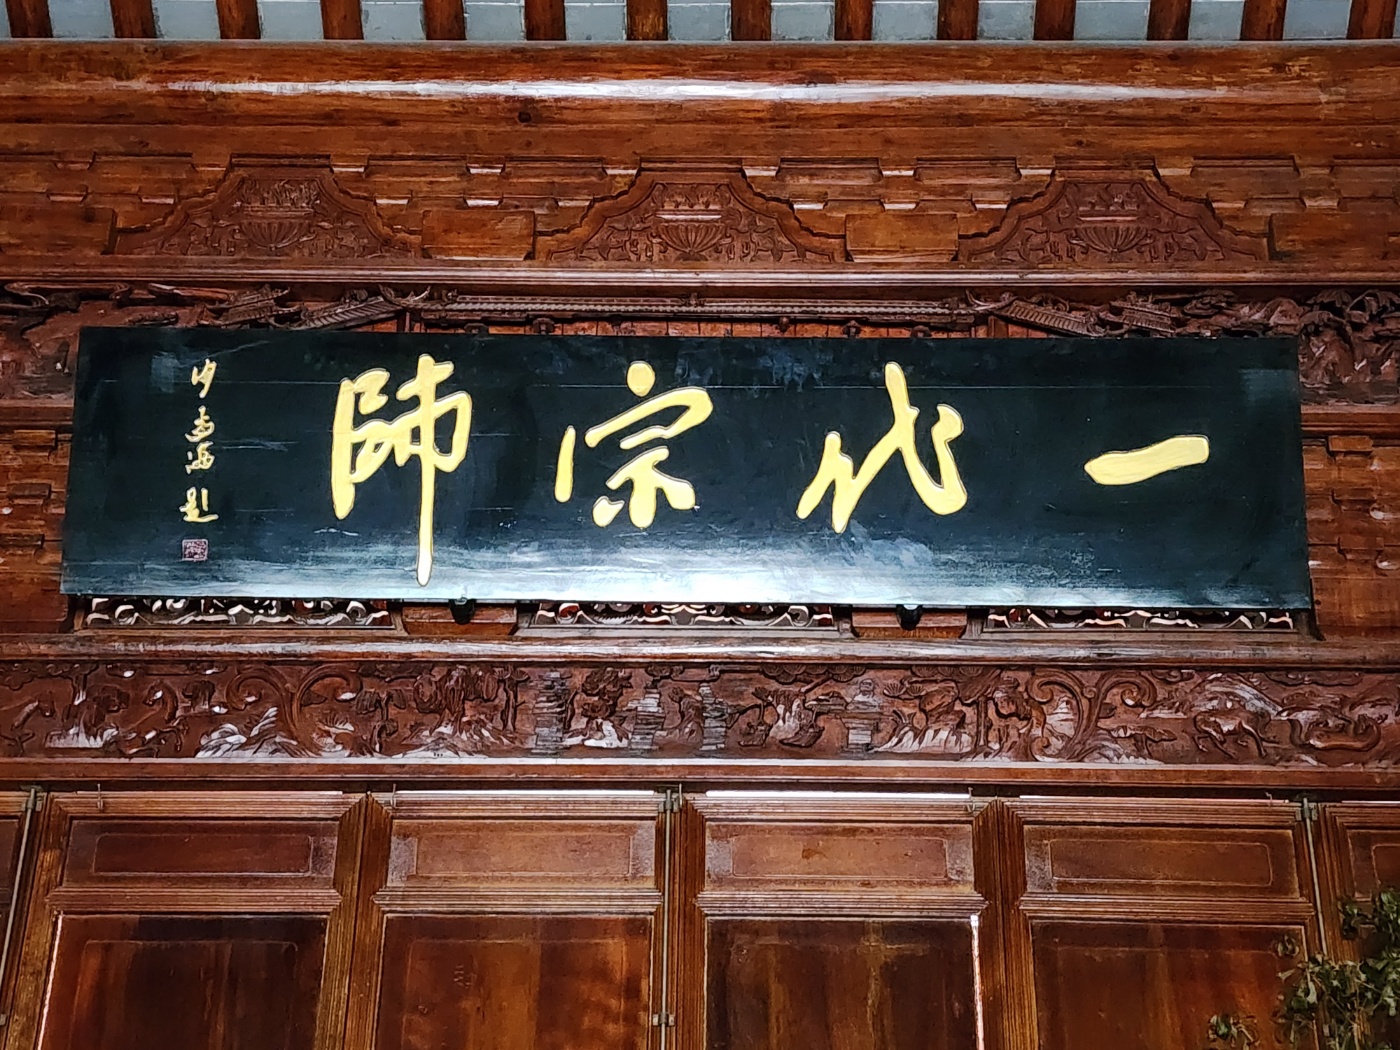 一代宗師
沙孟海題